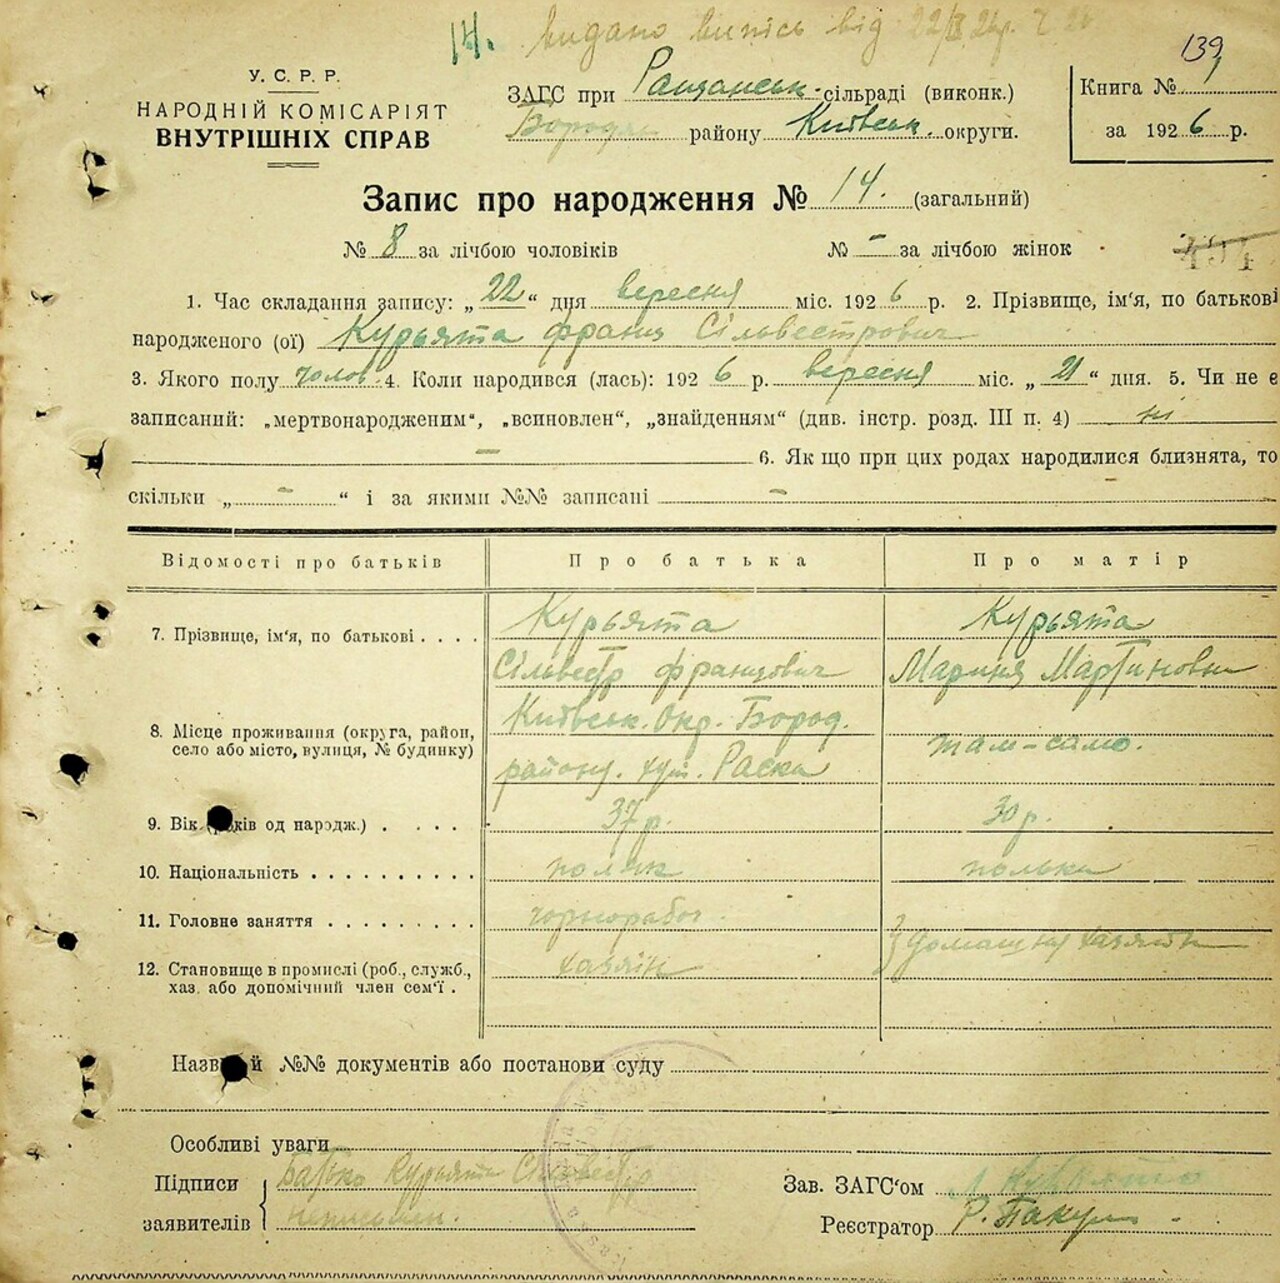 14. видано випісь від 22/IX 26р.
139
У. С. Р. Р.
НАРОДНІЙ КОМІСАРІЯТ
ВНУТРІШНІХ СПРАВ
ЗАГС при Ращанськ. сільраді (виконк.)
Бородян району Київськ. округи.
Книга № 1
за 1926 р.
Запис про народження № 14. (загальний)
№ 8 за лічбою чоловіків № - за лічбою жінок
1. Час складання запису: „22“ дня вересня міс. 1926 р. 2. Прізвище, ім'я, по батькові
народженого (ої) Курьята франц Сільвестрович
3. Якого полу чолов. 4. Коли народився (лась): 1926 р. вересня міс. „21“ дня. 5. Чи не є
записаний: „мертвонародженим“, „всиновлен“, „знайденням“ (див. інстр. розд. III п. 4) ні
— 6. Як що при цих родах народилися близнята, то
скільки „ - “ і за якими №№ записані -
Відомості про батьків Про батька Про матір
7. Прізвище, ім'я, по батькові . . . . Курьята Сільвестр францович Курьята Марина Мартиновна
8. Місце проживання (округа, район, село або місто, вулиця, № будинку) Київськ. Окр. Бород. району. хут. Раска там-само.
9. Вік (років од народж.) . . . . . 37 р. 30 р.
10. Національність . . . . . . . . . . поляк полька
11. Головне заняття . . . . . . . . . чорнорабоч.
12. Становище в промислі (роб., служб., хаз. або допомічний член сем'ї . хазяін
Назва й №№ документів або постанови суду
Особливі уваги
Підписи заявителів Батько Курьята Сільвестр
неписьмен.
Зав. ЗАГС'ом
Реєстратор Р. Пакул